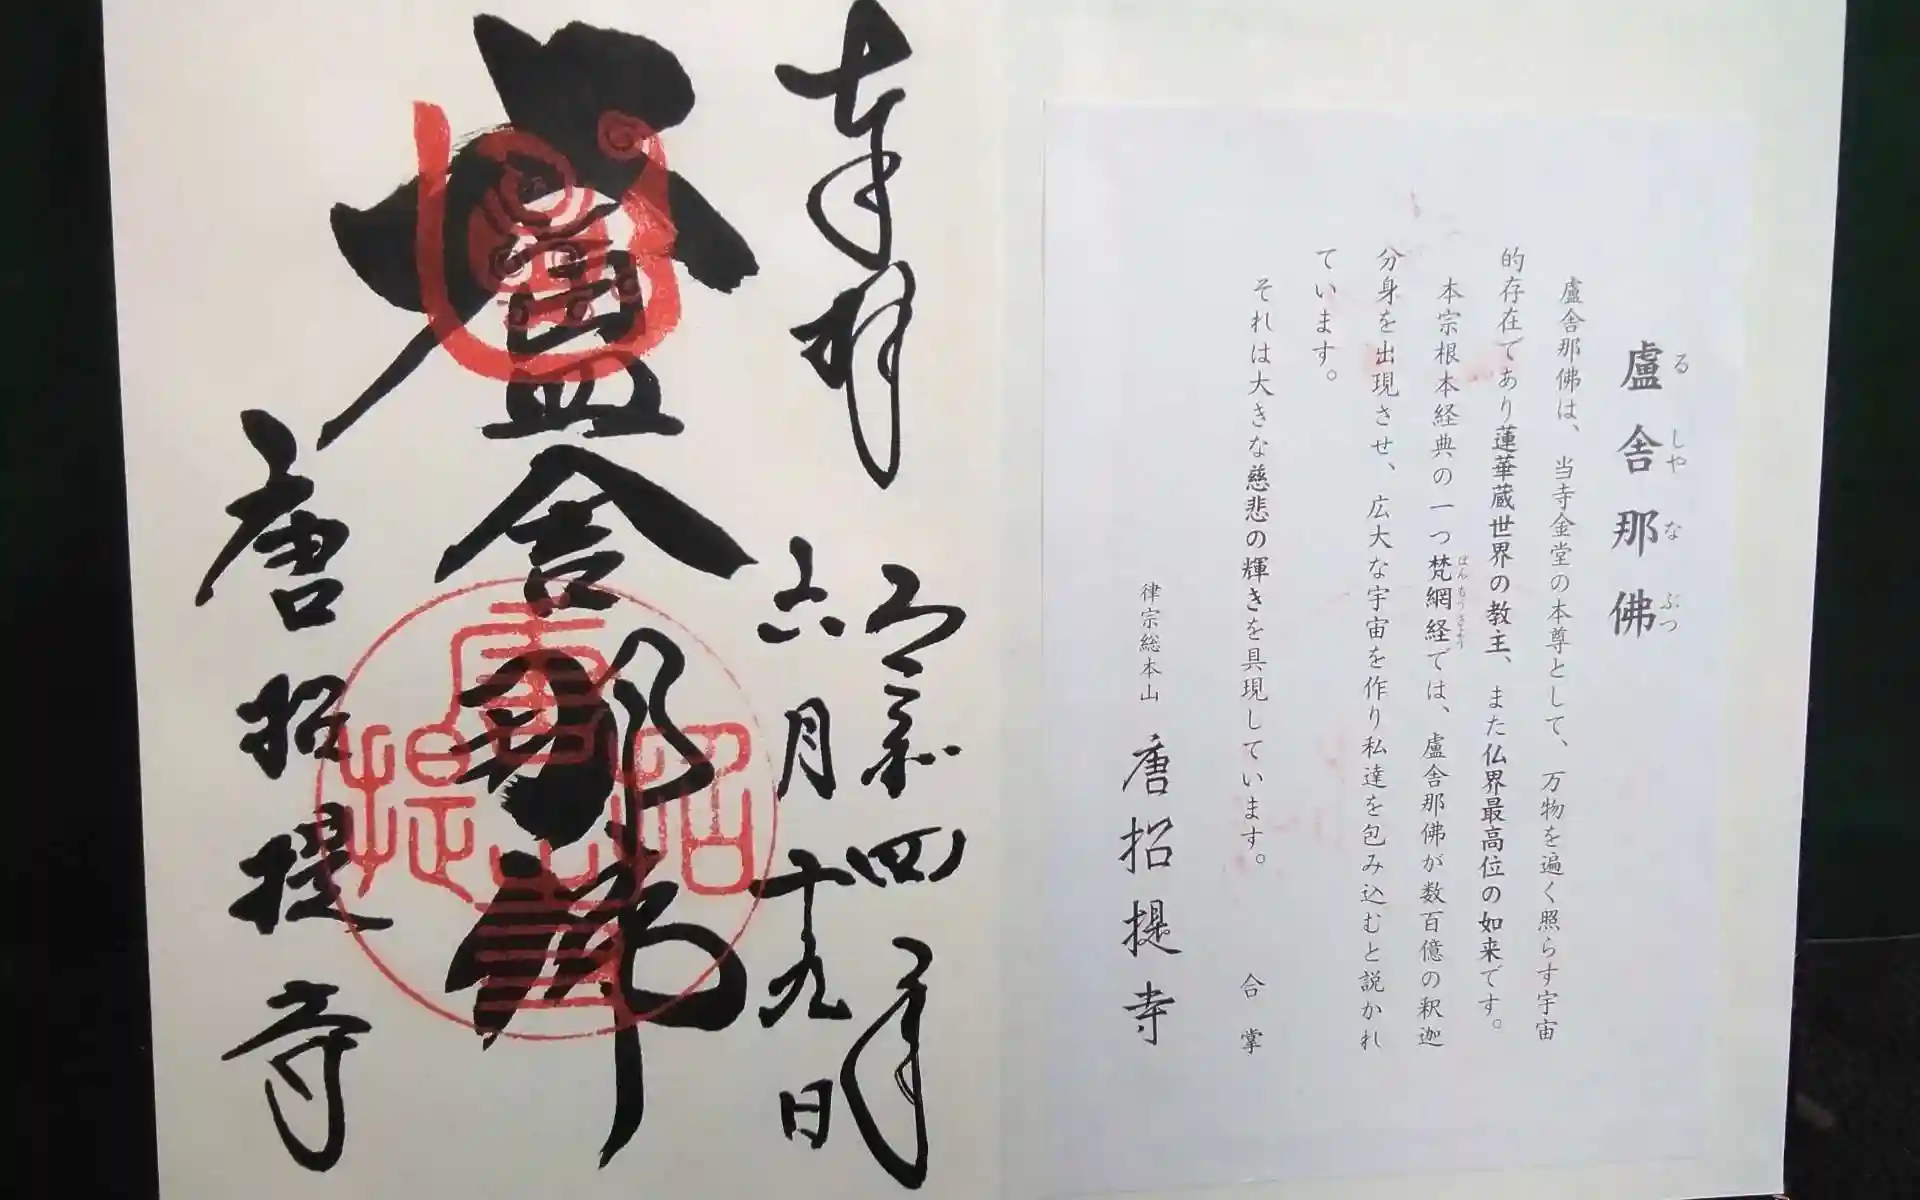 盧舎那佛
るしやなぶつ
盧舎那佛は、当寺金堂の本尊として、万物を遍く照らす宇宙
的存在であり蓮華蔵世界の教主、また仏界最高位の如来です。
本宗根本経典の一つ梵網経では、盧舎那佛が数百億の釈迦
ぼんもうきょう
分身を出現させ、広大な宇宙を作り私達を包み込むと説かれ
ています。
それは大きな慈悲の輝きを具現しています。
合掌
律宗総本山 唐招提寺
奉拝
令和四年
六月十九日
盧舎那佛
唐招提寺
唐招提寺